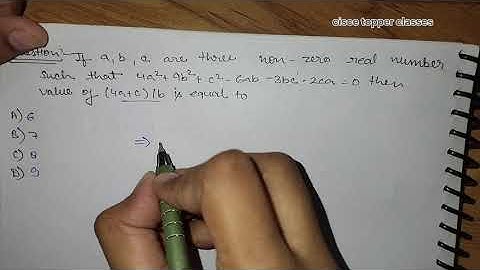 cisce topper classes
Question: If a, b, c are three non-zero real number
such that 4a²+9b²+c²-6ab-3bc-2ca=0 then
value of (4a+c)/b is equal to
A) 6
B) 7
C) 8
D) 9
⇒)